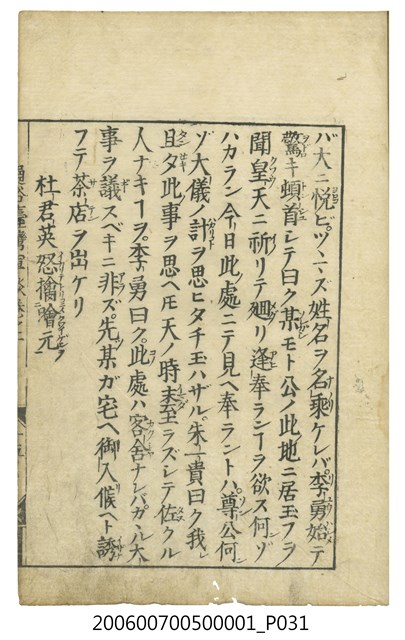 バ大ニ悦ビツヽミズ姓名ヲ名乘ケレバ李勇始テ
驚キ頓首シテ曰ク某モト公ノ此地ニ居玉フヲ
聞皇天ニ祈リテ廻リ逢奉ランヿヲ欲ス何ゾ
ハカラン今日此處ニテ見ヘ奉ラントハ尊公何
ゾ大儀ノ計ヲ思ヒタチ玉ハザル朱一貴曰ク我
且夕此事ヲ思ヘ𪜈天ノ時未至ラズシテ佐クル
人ナキヿヲ李勇曰ク此處ハ客舎ナレバカヽル大
事ヲ議スベキニ非ズ先某ガ宅ヘ御入候ヘト誘
フテ茶店ヲ出ケリ
杜君英怒擒噲元
200600700500001_P031